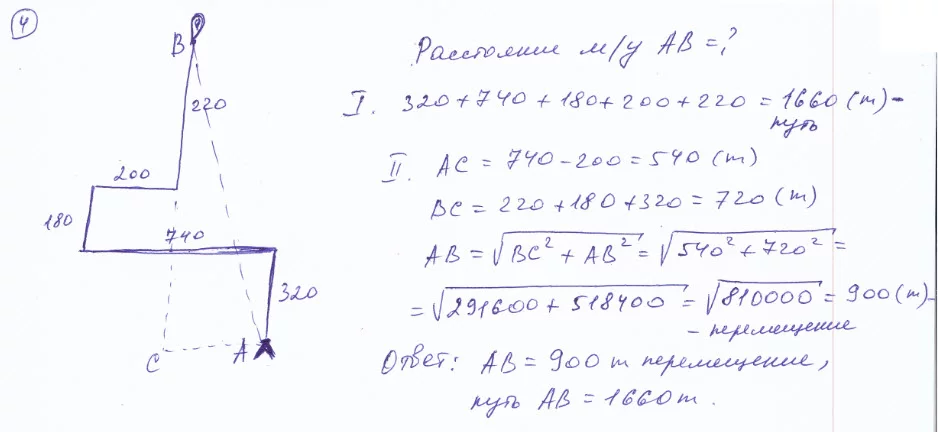 4
B
220
200
180
740
320
C
A
Расстояние м/у AB = ?
I. 320 + 740 + 180 + 200 + 220 = 1660 (m) -
путь
II. AC = 740 - 200 = 540 (m)
BC = 220 + 180 + 320 = 720 (m)
AB = √BC² + AB² = √540² + 720² =
= √291600 + 518400 = √810000 = 900 (m) -
- перемещение
Ответ: AB = 900 m перемещение,
путь AB = 1660 m.